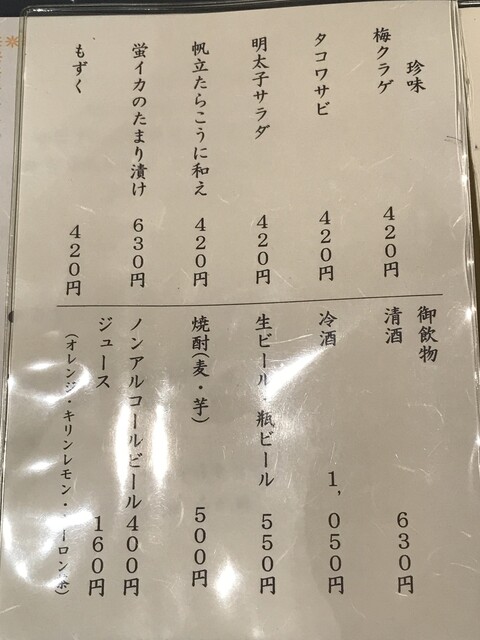 珍味
梅クラゲ 420円
タコワサビ 420円
明太子サラダ 420円
帆立たらこうに和え 420円
蛍イカのたまり漬け 630円
もずく 420円
御飲物
清酒 630円
冷酒 1,050円
生ビール・瓶ビール 550円
焼酎(麦・芋) 500円
ノンアルコールビール 400円
ジュース 160円
(オレンジ・キリンレモン・ーロン茶)